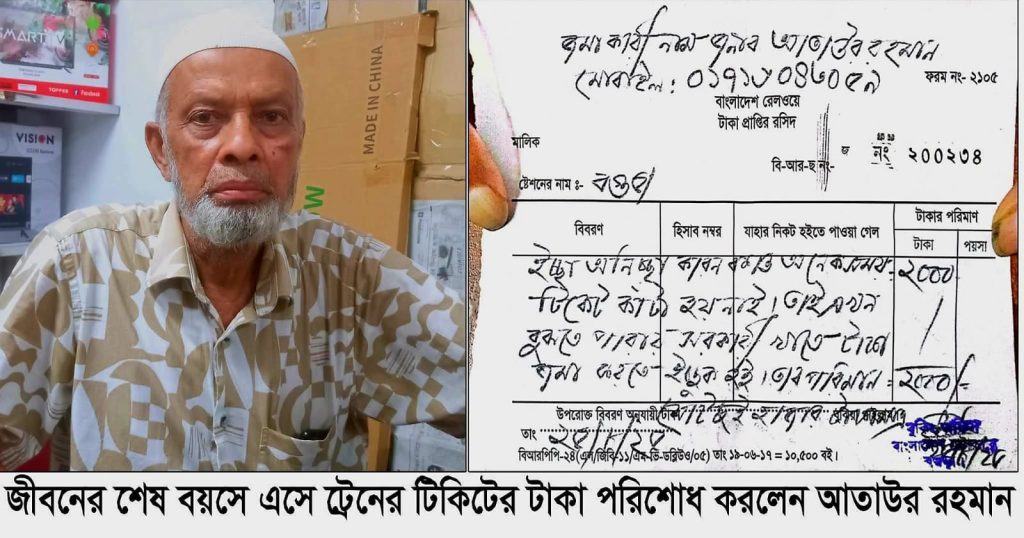 SMART TV
TOPPER
Facebook
VISION
MADE IN CHINA
জমা কারী নাম জনাব আতাউর রহমান
মোবাইল : ০১৭১৩০৪৬০৫৯
ফরম নং- ২১০৫
বাংলাদেশ রেলওয়ে
টাকা প্রাপ্তির রসিদ
মালিক
বি-আর-ছ নং-
জ
নং ২০০২৩৪
ষ্টেশনের নাম ঃ- বগুড়া
বিবরণ
হিসাব নম্বর
যাহার নিকট হইতে পাওয়া গেল
টাকার পরিমাণ
টাকা
পয়সা
ইচ্ছা অনিচ্ছা কারন বশত অনেক সময় ২০০০
টিকেট কাটা হয় নাই। তাই এখন
বুঝতে পারায় সরকারী খাতে টাকা
জমা করতে ইচ্ছুক হই। তার পরিমান = ২০০০/-
উপরোক্ত বিবরণ অনুযায়ী টাকা
তাং
বিআরপিপি-২৪(এল/জিবি-১১/এম-ভি-ডব্লিউও/০৫) তাং ১৯-০৬-১৭ = ১০,৫০০ বই।
জীবনের শেষ বয়সে এসে ট্রেনের টিকিটের টাকা পরিশোধ করলেন আতাউর রহমান